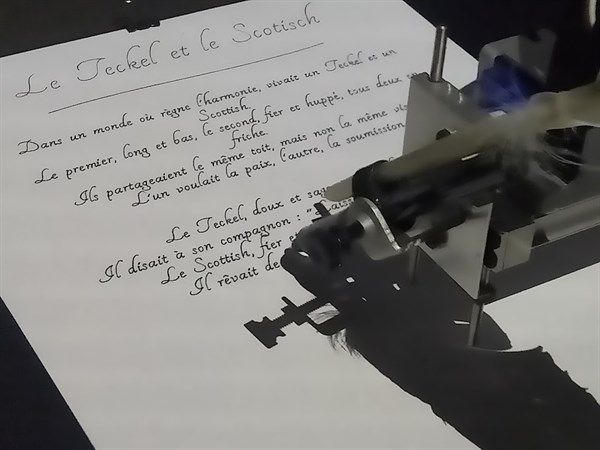 Le Teckel et le Scotisch
Dans un monde où règne l'harmonie, vivait un Teckel et un
Scottish.
Le premier, long et bas, le second, fier et huppé, tous deux
friche.
Ils partageaient le même toit, mais non la même
L'un voulait la paix, l'autre, la soumission
Le Teckel, doux et
Il disait à son compagnon : "
Le Scottish, fier
Il rêvait de